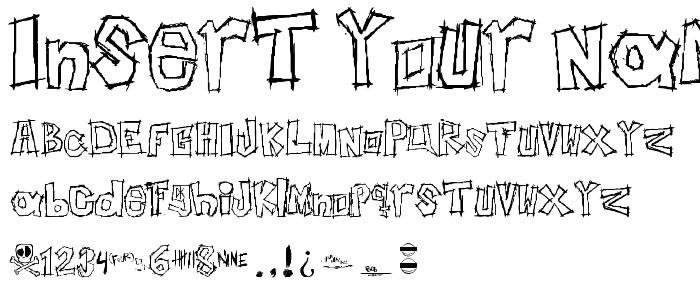 Insert Your Na
ABCDEFGHIJKLMNOPQRSTUVWXYZ
abcdefghijklmnopqrstuvwxyz
123 4 6 8 NINE . , ! ¿